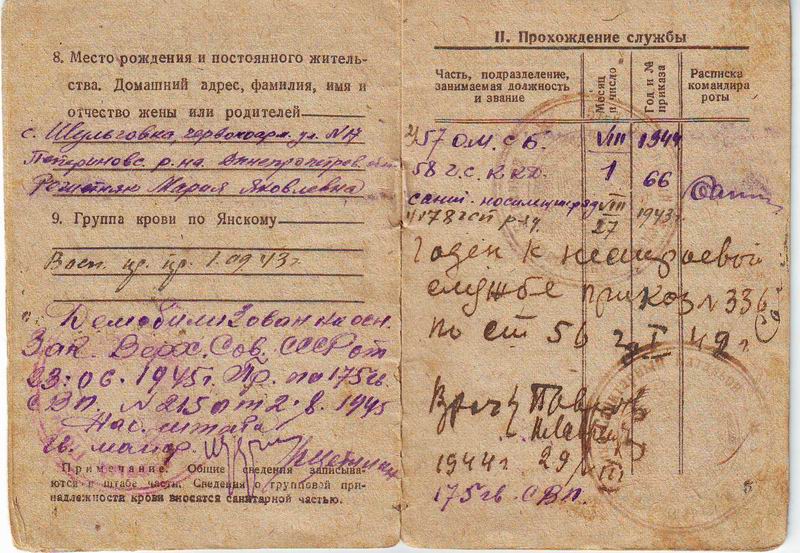 8. Место рождения и постоянного житель-
ства. Домашний адрес, фамилия, имя и
отчество жены или родителей
с. Шульговка, червоноарм. ул. N17
р-на. Днепропетров.
Решетняк Мария Яковлевна
9. Группа крови по Янскому
Восп. пр. пр. 1.09.43г
Демобилизован на осн.
Зак. Верх. Сов. СССР от
23.06.1945г. Пр. по 175гв.
СВП. N 215 от 2.8. 1945
Нач. штаба
гв. майор
Примечание. Общие сведения записыва-
ются в штабе части. Сведения о групповой при-
надлежности крови вносятся санитарной частью.
II. Прохождение службы
Часть, подразделение,
занимаемая должность
и звание
Месяц
и число
Год и №
приказа
Расписка
командира
роты
57 О.М.С.Б. VIII 1944
58 1 66
санит. носильщик VIII
178 27 1943г.
Годен к нестроевой
службе приказ N 336
по ст 56 42 г
Врач
1944г 29/VIII
175гв. СВП.